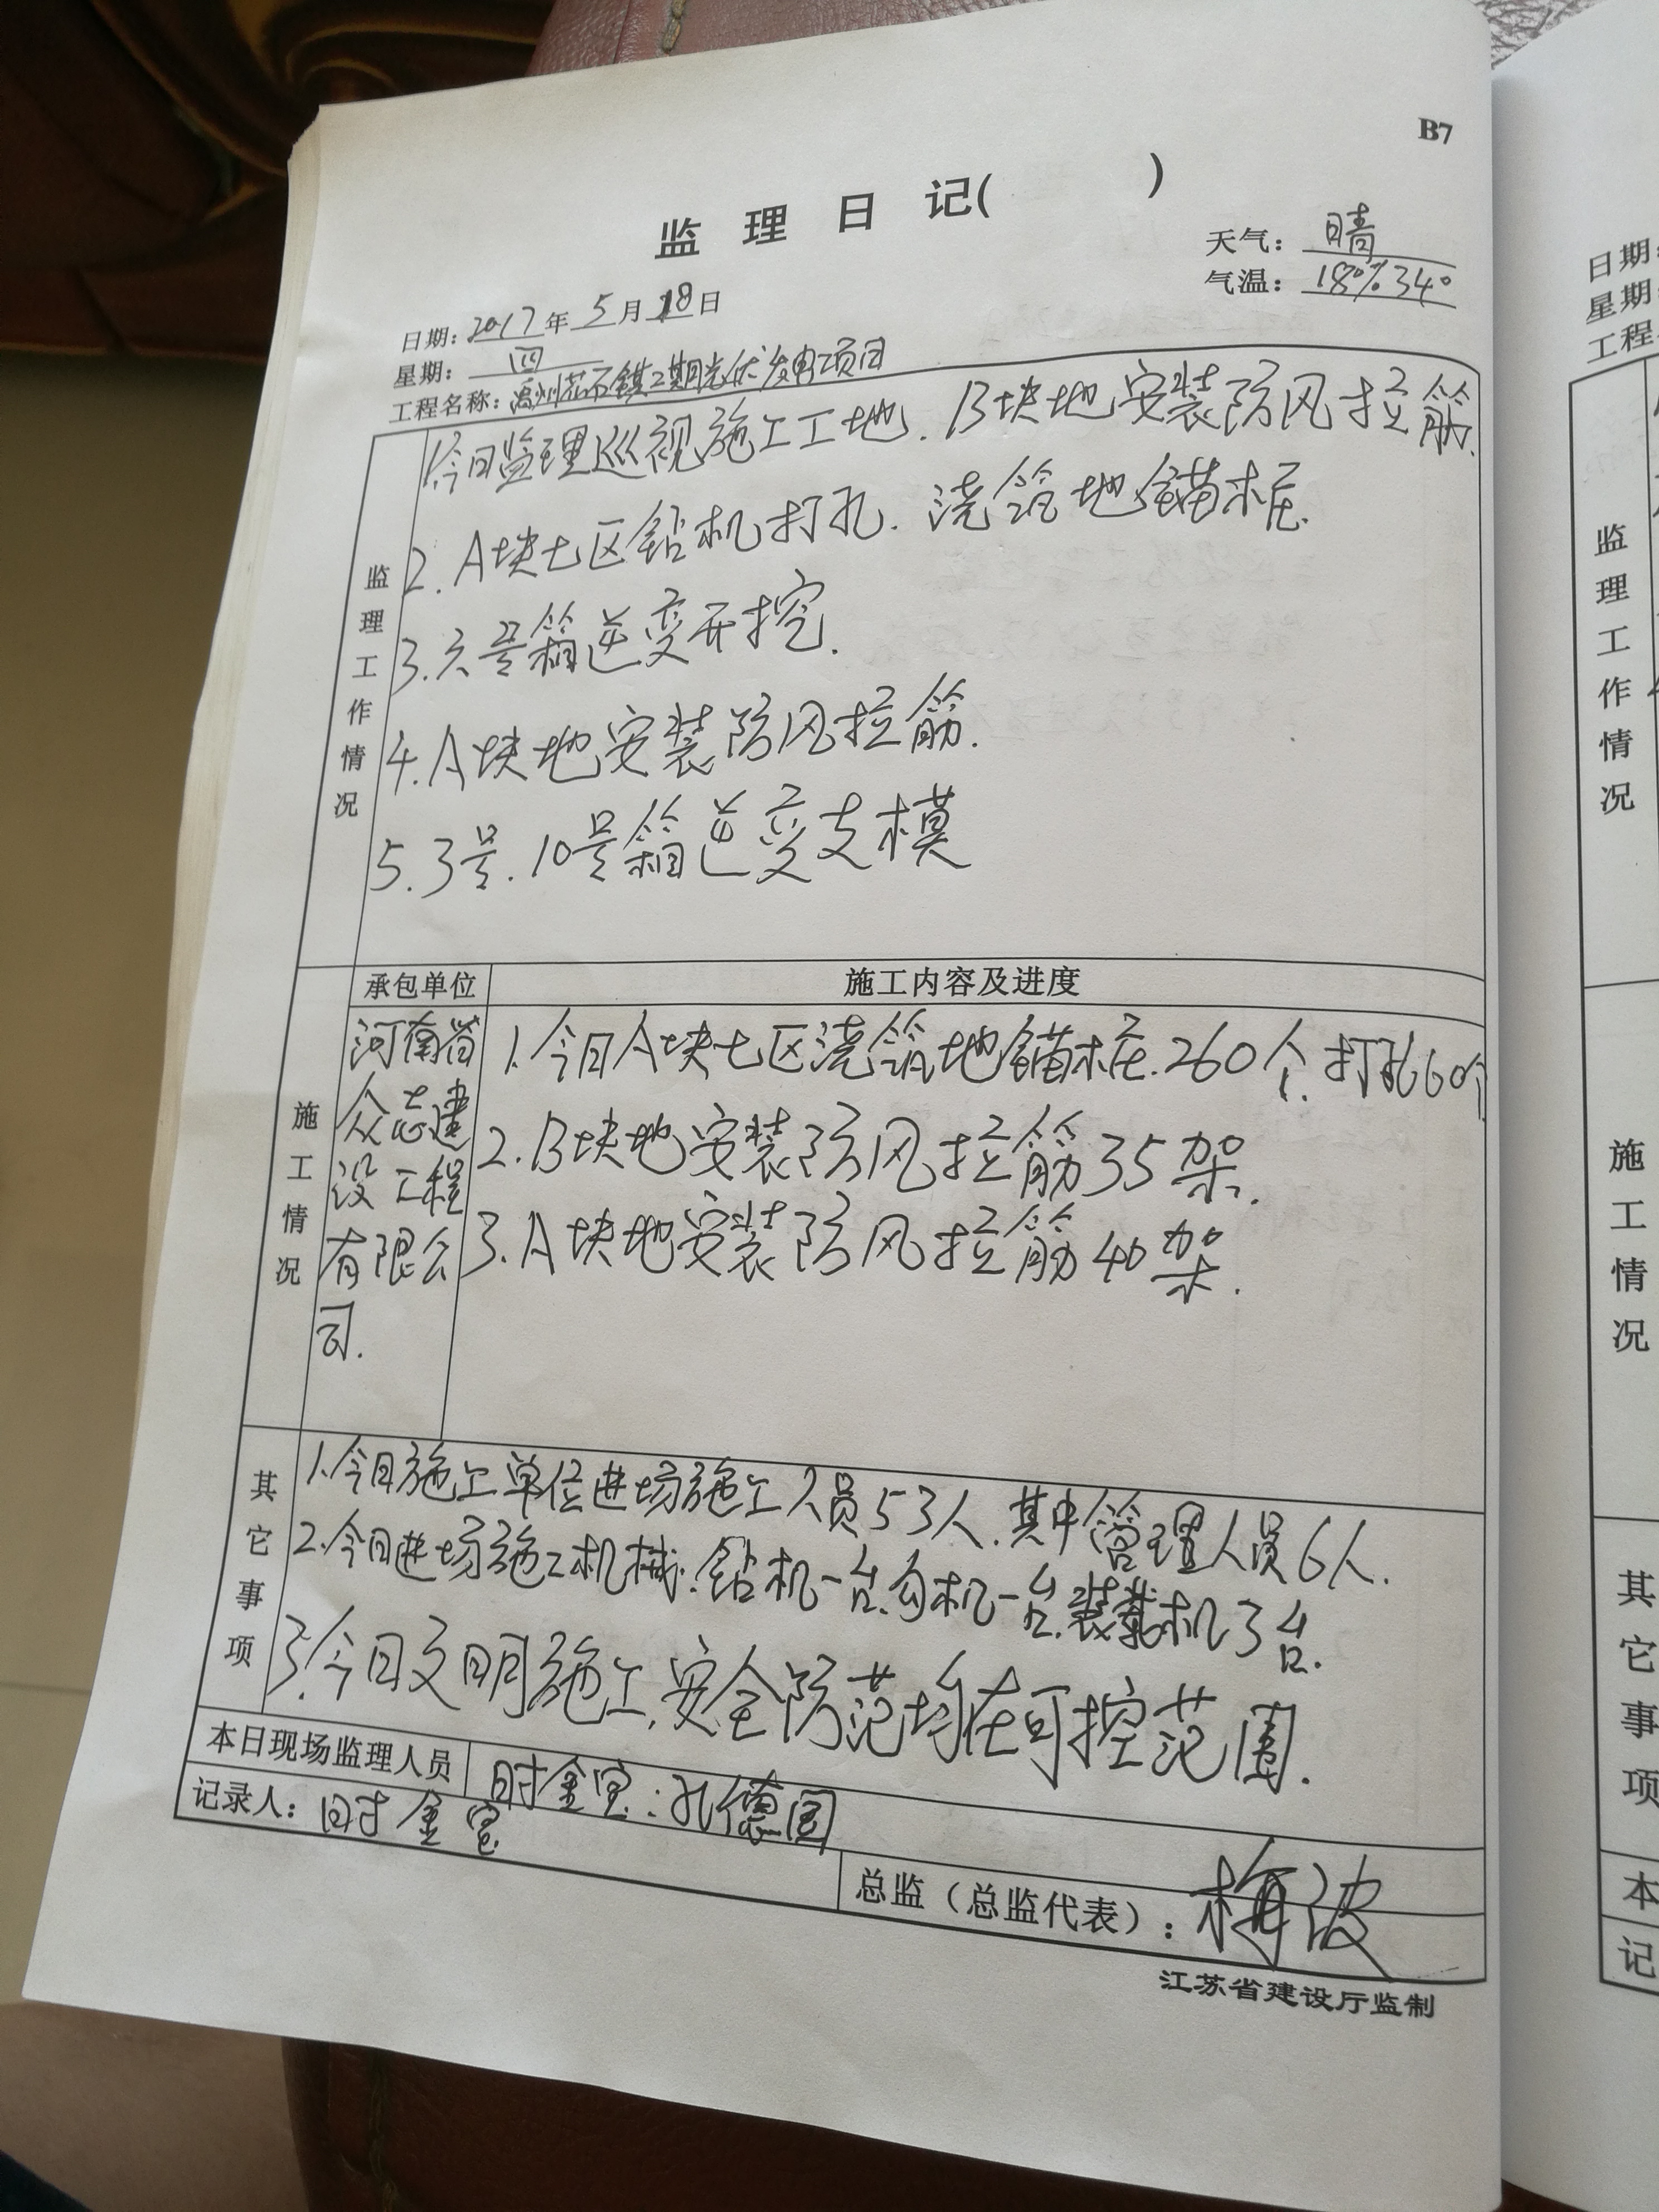 B7
监理日记(　　)
天气：晴
气温：18°/34°
日期：2017年5月18日
星期：四
工程名称：禹州花石镇二期光伏发电项目
监理工作情况
1.今日监理巡视施工工地.B块地安装防风拉筋.
2.A块七区钻机打孔.浇筑地锚桩.
3.六号箱逆变开挖.
4.A块地安装防风拉筋.
5.3号.10号箱逆变支模
施工情况
承包单位 施工内容及进度
河南省众志建设工程有限公司.
1.今日A块七区浇筑地锚桩.260个.打孔60个
2.B块地安装防风拉筋35架.
3.A块地安装防风拉筋40架.
其它事项
1.今日施工单位进场施工人员53人.其中管理人员6人.
2.今日进场施工机械:钻机一台.勾机一台.装载机3台.
3.今日文明施工,安全防范均在可控范围.
本日现场监理人员 时金宝:孔德国
记录人：时金宝
总监（总监代表）：梅波
江苏省建设厅监制
日期:
星期:
工程
监理工作情况
施工情况
其它事项
本
记